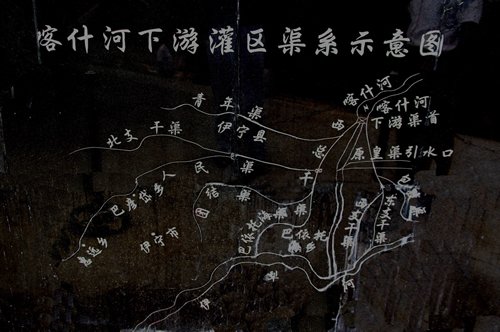 喀什河下游灌区渠系示意图
喀什河
喀什河
下游渠首
青年渠
伊宁县
北支干渠
西总干
原皇渠引水口
人民渠
团结渠
巴彦岱乡
惠远乡
伊宁市
巴依托海渠
巴依托海乡
西支干渠
东支干渠
伊犁河